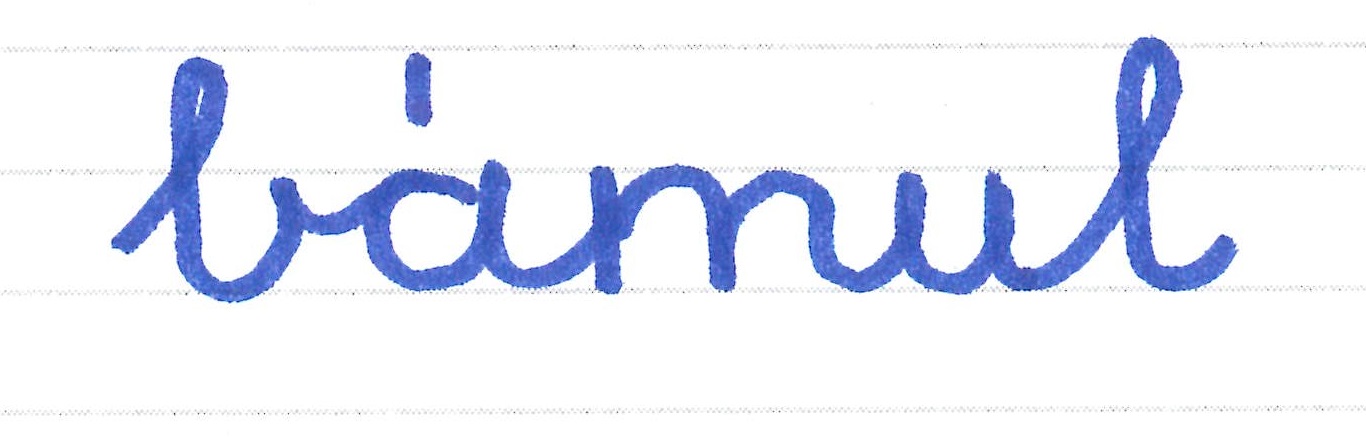 bámul